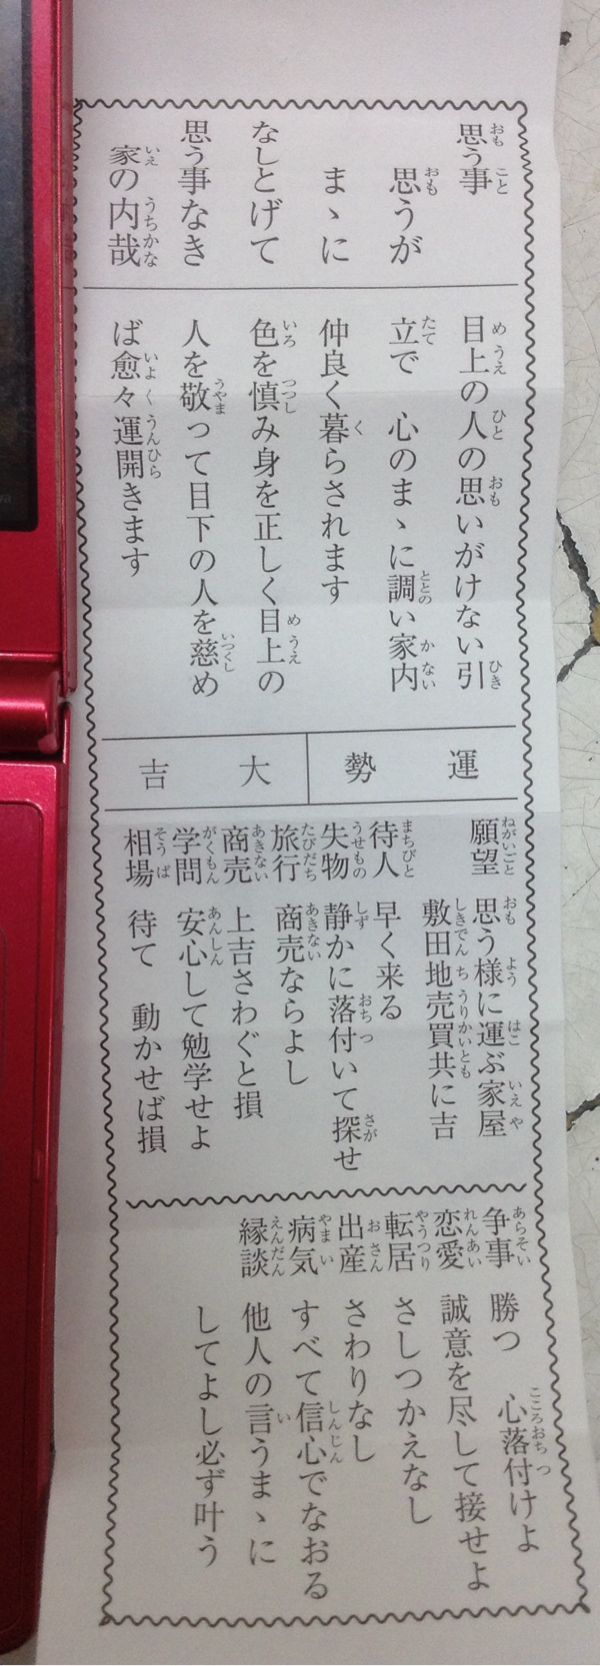 思う事
思うが
まゝに
なしとげて
思う事なき
家の内哉
目上の人の思いがけない引
立で　心のまゝに調い家内
仲良く暮らされます
色を慎み身を正しく目上の
人を敬って目下の人を慈め
ば愈々運開きます
運勢
大吉
願望　思う様に運ぶ家屋
敷田地売買共に吉
待人　早く来る
失物　静かに落付いて探せ
旅行　商売ならよし
商売　上吉さわぐと損
学問　安心して勉学せよ
相場　待て　動かせば損
争事　勝つ　心落付けよ
恋愛　誠意を尽して接せよ
転居　さしつかえなし
出産　さわりなし
病気　すべて信心でなおる
縁談　他人の言うまゝに
してよし必ず叶う